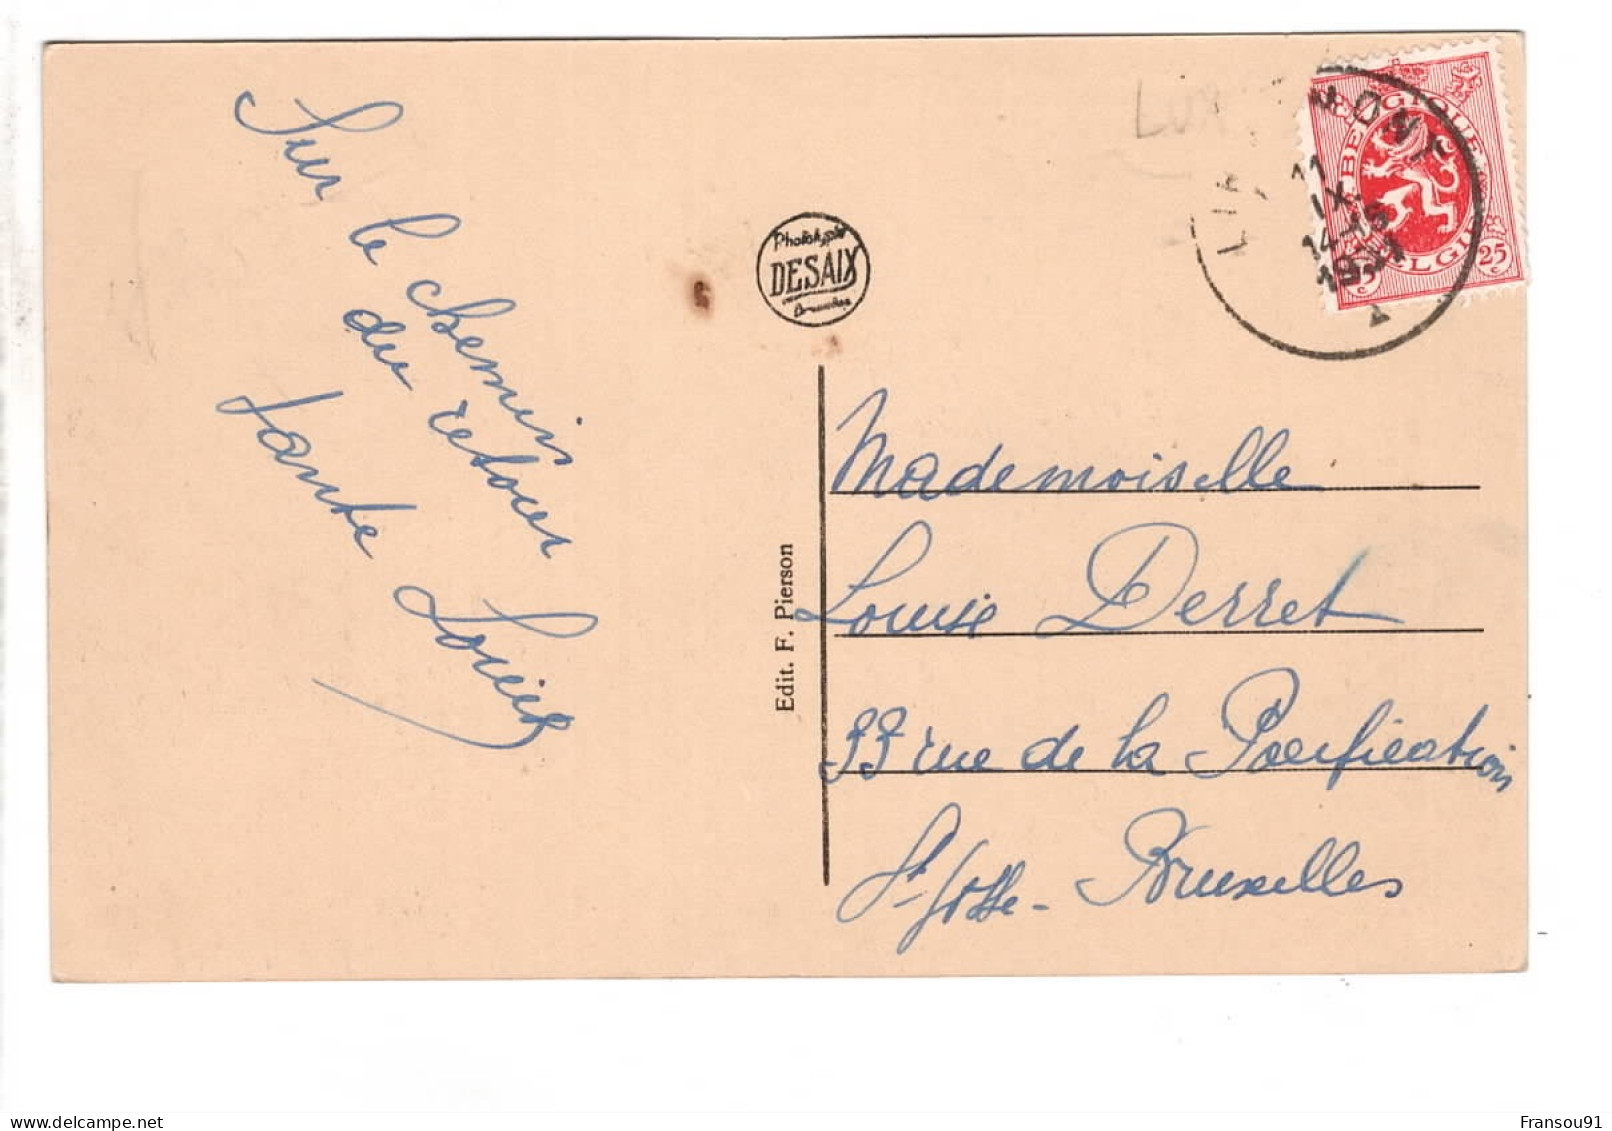 Sur
le chemin
du retour
Tante Louise
Phototypie
DESAIX
Bruxelles
Edit. F. Pierson
BELGIQUE
BELGIË
25
c
11
IX
14-15
Mademoiselle
Louise Derret
33 rue de la Pacification
St-Josse- Bruxelles
delcampe.net
Fransou91